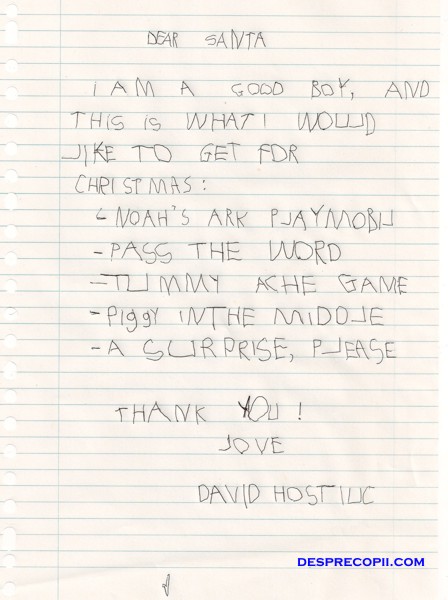 DEAR SANTA
I AM A GOOD BOY, AND
THIS IS WHAT I WOULD
LIKE TO GET FOR
CHRISTMAS:
- NOAH'S ARK PLAYMOBIL
- PASS THE WORD
- TUMMY ACHE GAME
- PIggy IN THE MIDDLE
- A SURPRISE, PLEASE
THANK YOU!
LOVE
DAVID HOSTIUC
DESPRECOPII.COM